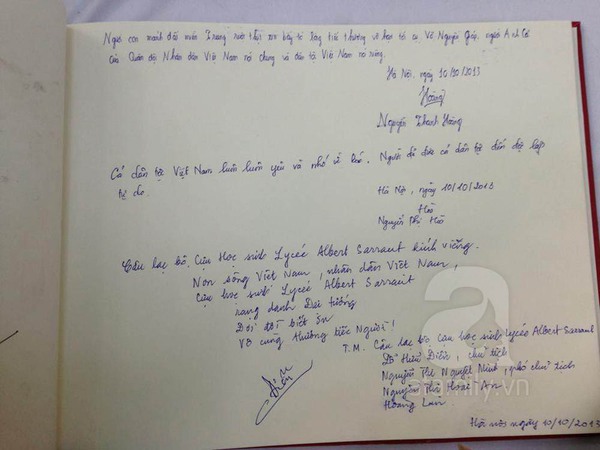 Người con mảnh đất miền Trung xin bày tỏ lòng tiếc thương vô hạn tới cụ Võ Nguyên Giáp, người Anh Cả
của Quân đội Nhân dân Việt Nam nói chung và dân tộc Việt Nam nói riêng.
Hà Nội, ngày 10/10/2013
Hoàng
Nguyễn Thanh Hoàng
Cả dân tộc Việt Nam luôn luôn yêu và nhớ về bác. Người đã đưa cả dân tộc đến độc lập
tự do.
Hà Nội, ngày 10/10/2013
Hảo
Nguyễn Thị Hảo
Câu lạc bộ Cựu Học sinh Lycée Albert Sarraut kính viếng.
Non sông Việt Nam, nhân dân Việt Nam,
Cựu học sinh Lycée Albert Sarraut
rạng danh Đại tướng
Đời đời biết ơn
Vô cùng thương tiếc Người!
T.M. Câu lạc bộ Cựu học sinh Lycée Albert Sarraut
Diễn, chủ tịch
Nguyễn Thị Nguyệt Minh, phó chủ tịch
Nguyễn Thị Hoài An
Hoàng Lan
Hà Nội ngày 10/10/2013
afamily.vn